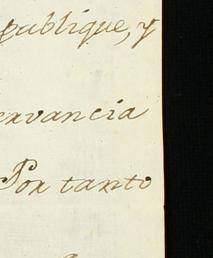 publique, y
ervancia
Por tanto